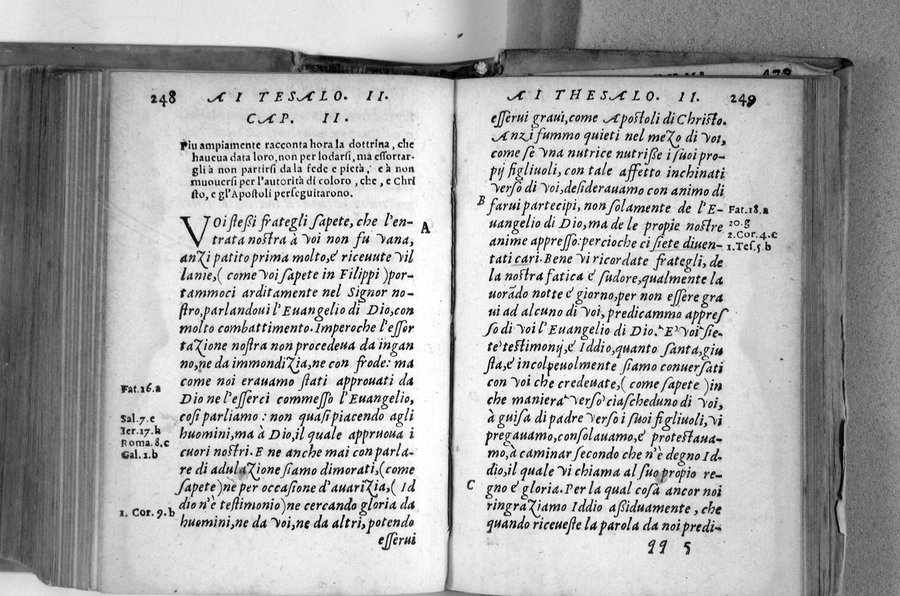 248 AI TESALO. II.
CAP. II.
Piu ampiamente racconta hora la dottrina, che
haueua data loro, non per lodarsi, ma essortar-
gli à non partirsi da la fede e pietà, e à non
muouersi per l'autorità di coloro, che, e Chri
sto, e gl'Apostoli perseguitarono.
VOi stessi frategli sapete, che l'en-
trata nostra à voi non fu vana,
anzi patito prima molto, é riceuute vil
lanie, ( come voi sapete in Filippi )por-
tammoci arditamente nel Signor no-
stro, parlandoui l'Euangelio di Dio, con
molto combattimento. Imperoche l'essor
tazione nostra non procedeua da ingan
no, ne da immondizia, ne con frode: ma
come noi erauamo stati approuati da
Dio ne l'esserci commesso l'Euangelio,
cosi parliamo : non quasi piacendo agli
huomini, ma à Dio, il quale appruoua i
cuori nostri. E ne anche mai con parla-
re di adulazione siamo dimorati, (come
sapete )ne per occasione d'auarizia, ( Id
dio n'è testimonio )ne cercando gloria da
huomini, ne da voi, ne da altri, potendo
esserui
A
Fat.16.a
Sal.7.e
Ier.17.h
Roma.8.c
Gal.1.b
1. Cor.9.b
AI THESALO. II. 249
esserui graui, come Apostoli di Christo.
Anzi fummo quieti nel mezo di voi,
come se vna nutrice nutrisse i suoi pro-
pij figliuoli, con tale affetto inchinati
verso di voi, desiderauamo con animo di
farui partecipi, non solamente de l'E-
uangelio di Dio, ma de le propie nostre
anime appresso: percioche ci siete diuen-
tati cari. Bene vi ricordate frategli, de
la nostra fatica é sudore, qualmente la
uorādo notte é giorno, per non essere gra
ui ad alcuno di voi, predicammo appres
so di voi l'Euangelio di Dio. E voi sie-
te testimonij, é Iddio, quanto santa, giu
sta, é incolpeuolmente siamo conuersati
con voi che credeuate, ( come sapete )in
che maniera verso ciascheduno di voi,
à guisa di padre verso i suoi figliuoli, vi
pregauamo, consolauamo, é protestaua-
mo, à caminar secondo che n'è degno Id-
dio, il quale vi chiama al suo propio re-
gno é gloria. Per la qual cosa ancor noi
ringraziamo Iddio assiduamente, che
quando riceueste la parola da noi predi-
qq 5
B
C
Fat.18.a
20.g
2.Cor.4.c
1.Tes.5.b